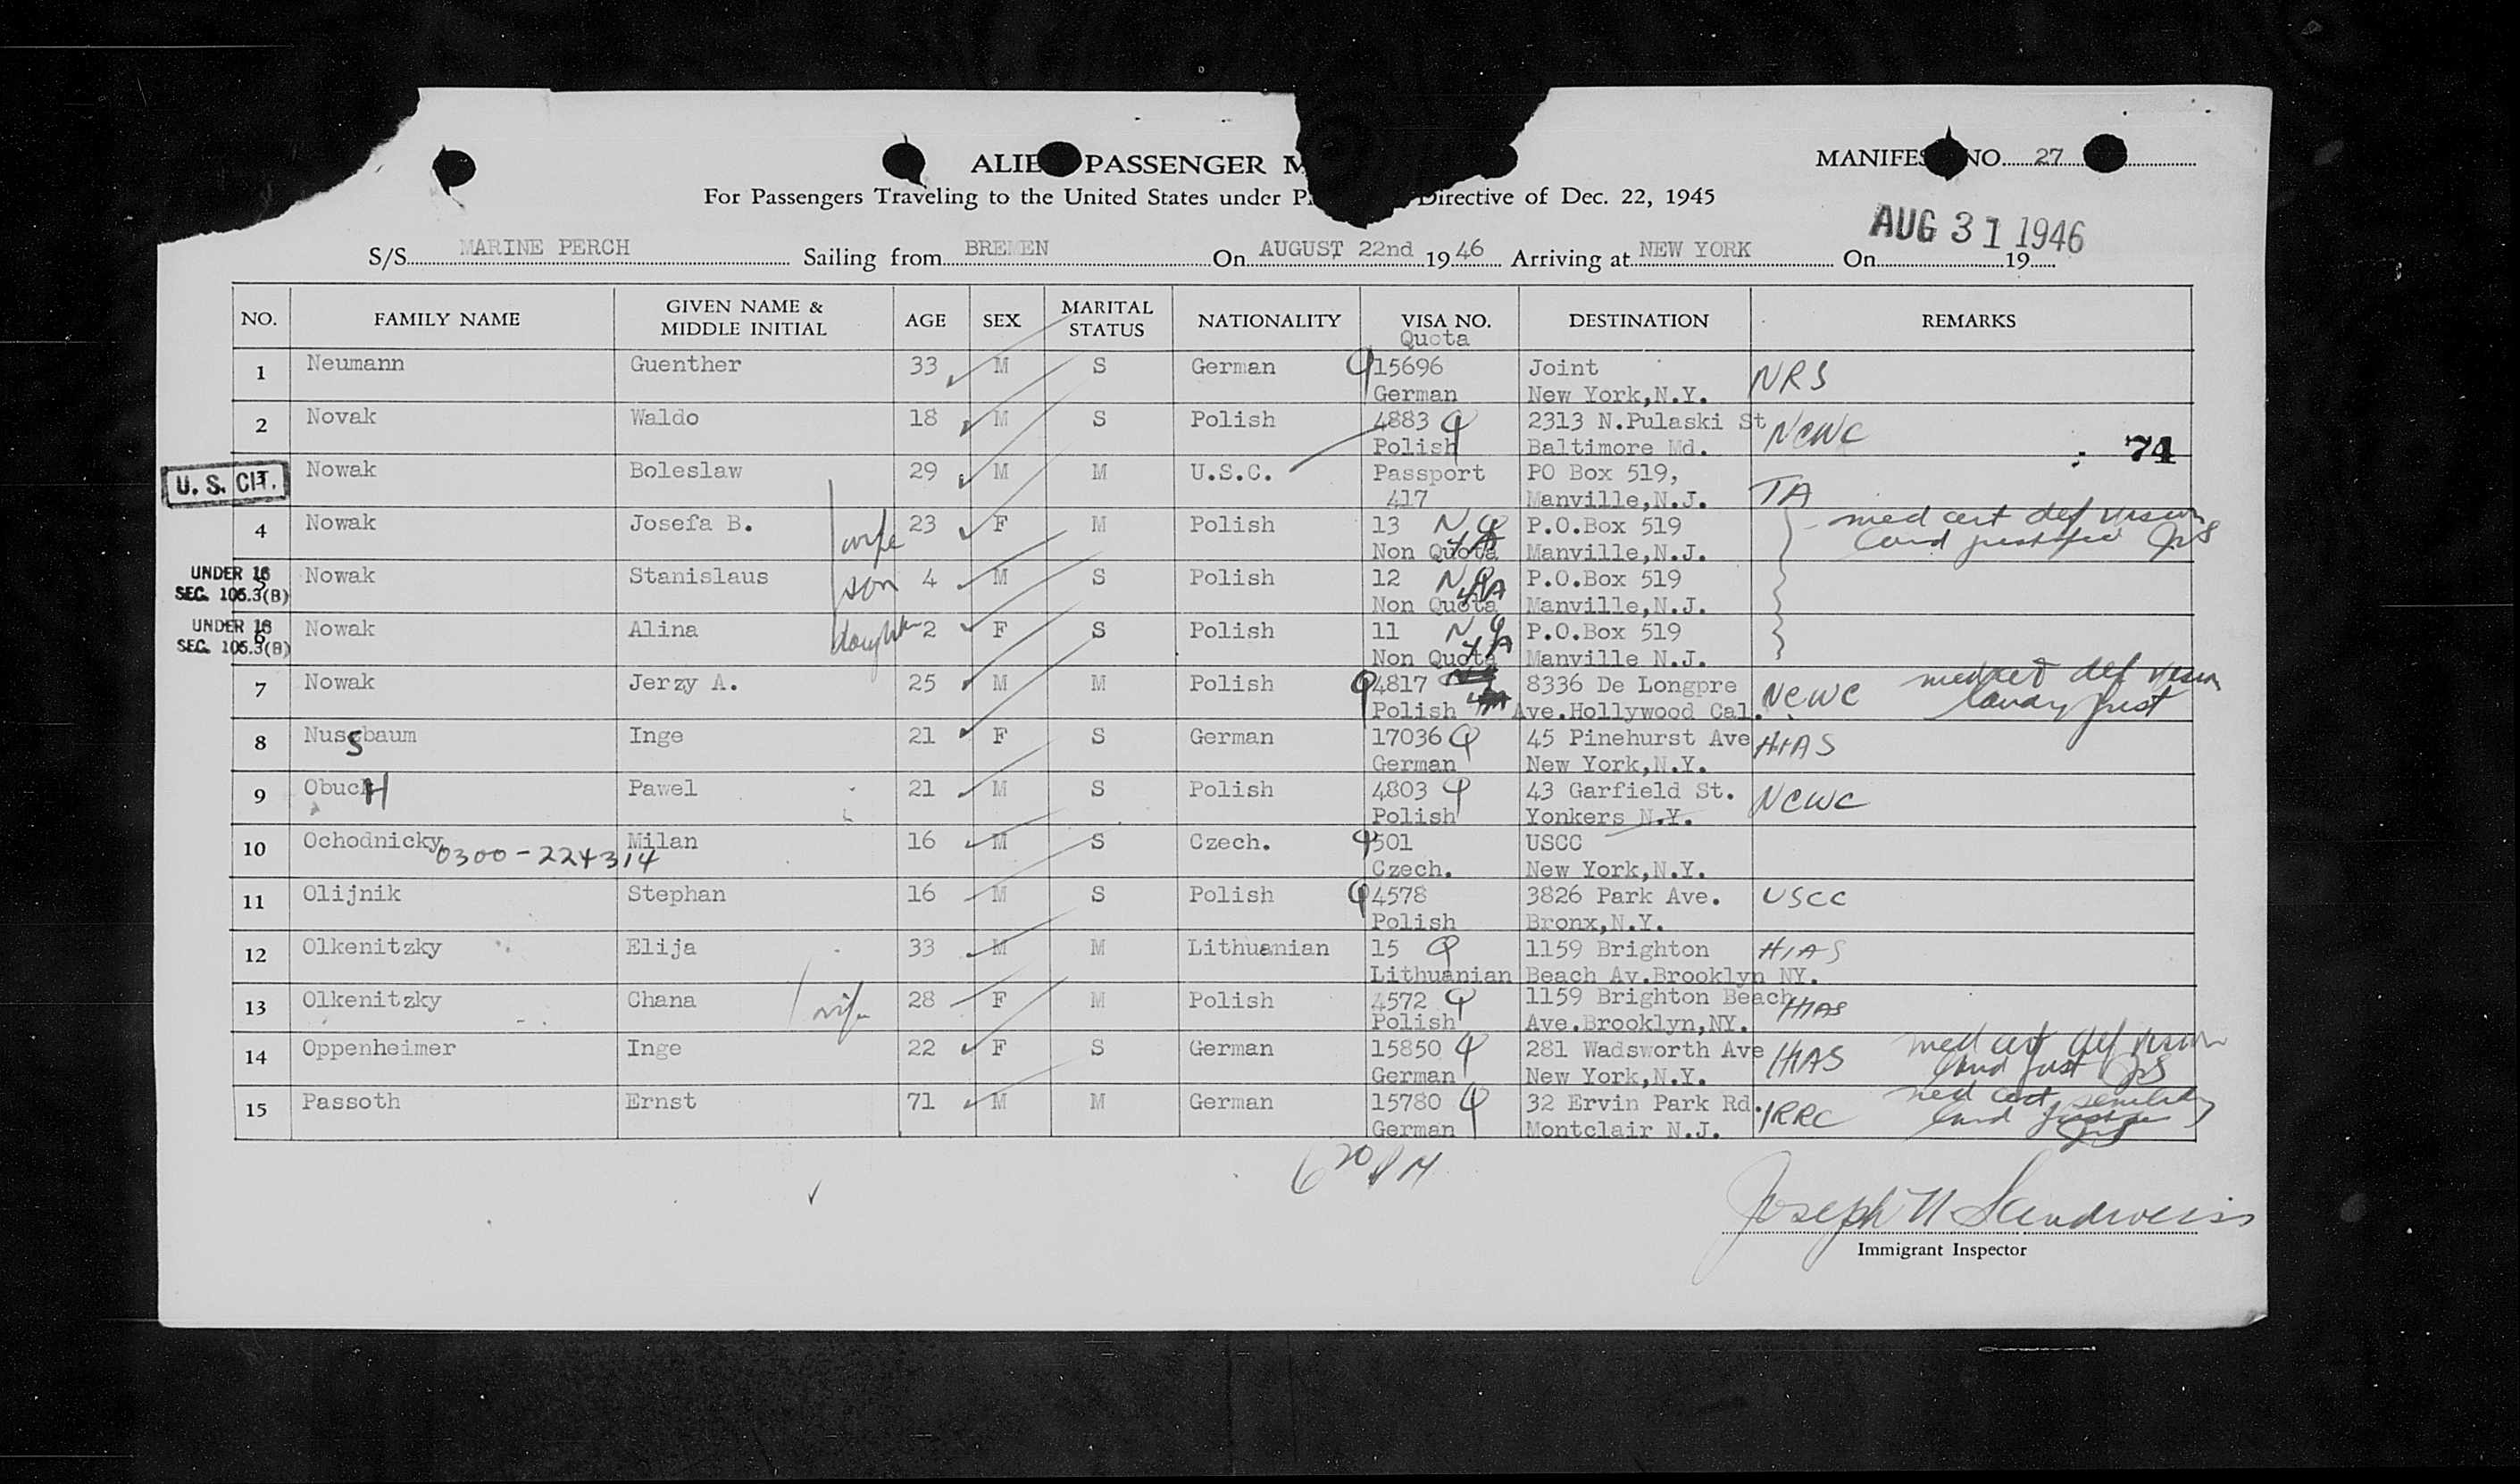 ALIE PASSENGER M
MANIFES NO. 27
For Passengers Traveling to the United States under P Directive of Dec. 22, 1945
AUG 31 1946
S/S MARINE PERCH Sailing from BREMEN On AUGUST 22nd 19 46 Arriving at NEW YORK On 19
NO. FAMILY NAME GIVEN NAME & MIDDLE INITIAL AGE SEX MARITAL STATUS NATIONALITY VISA NO. Quota DESTINATION REMARKS
1 Neumann Guenther 33 M S German 15696 Joint NRS
German New York,N.Y.
2 Novak Waldo 18 M S Polish 4883 2313 N.Pulaski St NCWC
Polish Baltimore Md. 74
U. S. CIT. 3 Nowak Boleslaw 29 M M U.S.C. Passport PO Box 519, TA
417 Manville,N.J.
4 Nowak Josefa B. wife 23 F M Polish 13 NQ P.O.Box 519 med cert def vision
Non Quota 4A Manville,N.J. cand justified JNS
UNDER 16 5 Nowak Stanislaus son 4 M S Polish 12 NQ P.O.Box 519
SEC. 105.3(B) Non Quota 4A Manville,N.J.
UNDER 16 6 Nowak Alina daughter 2 F S Polish 11 NQ P.O.Box 519
SEC. 105.3(B) Non Quota 4A Manville N.J.
7 Nowak Jerzy A. 25 M M Polish 4817 8336 De Longpre NCWC med cert def vision
Polish Ave.Hollywood Cal. just
8 Nussbaum Inge 21 F S German 17036 45 Pinehurst Ave HIAS
German New York,N.Y.
9 ObucH Pawel 21 M S Polish 4803 43 Garfield St. NCWC
Polish Yonkers N.Y.
10 Ochodnicky Milan 16 M S Czech. 501 USCC
0300-224314 Czech. New York,N.Y.
11 Olijnik Stephan 16 M S Polish 4578 3826 Park Ave. USCC
Polish Bronx,N.Y.
12 Olkenitzky Elija 33 M M Lithuanian 15 1159 Brighton HIAS
Lithuanian Beach Av.Brooklyn NY.
13 Olkenitzky Chana wife 28 F M Polish 4572 1159 Brighton Beach HIAS
Polish Ave.Brooklyn,NY.
14 Oppenheimer Inge 22 F S German 15850 281 Wadsworth Ave HIAS med cert def vision
German New York,N.Y. cand just JNS
15 Passoth Ernst 71 M M German 15780 32 Ervin Park Rd. IRRC med cert senility
German Montclair N.J. cand
6 20 PM
Joseph N Sandweiss
Immigrant Inspector